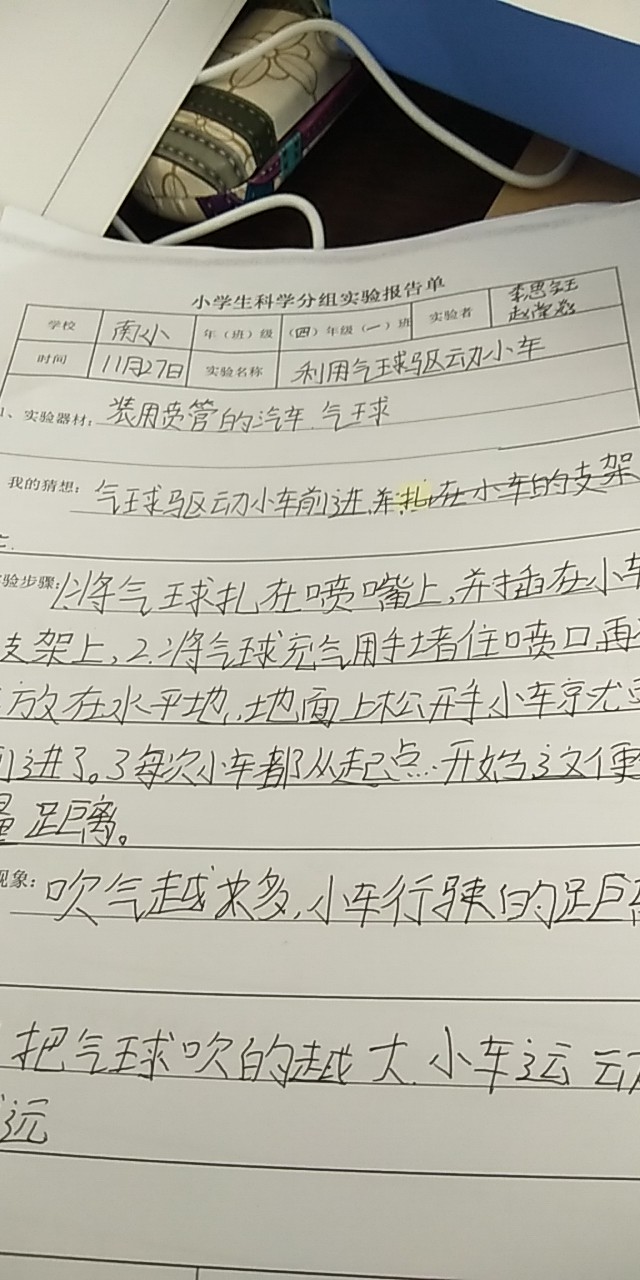 小学生科学分组实验报告单
学校 南小 年（班）级 （四）年级（一）班 实验者 李思 赵
时间 11月27日 实验名称 利用气球驱动小车
、实验器材：装用喷管的汽车.气球
我的猜想：气球驱动小车前进,并扎在小车的支架
验步骤：1.将气球扎在喷嘴上,并插在小车
支架上,2.将气球充气用手堵住喷口,再
放在水平地,地面上松开手,小车就
进了。3每次小车都从起点开始,这便
量距离。
现象：吹气越来多,小车行驶的距离
把气球吹的越大.小车运动
远